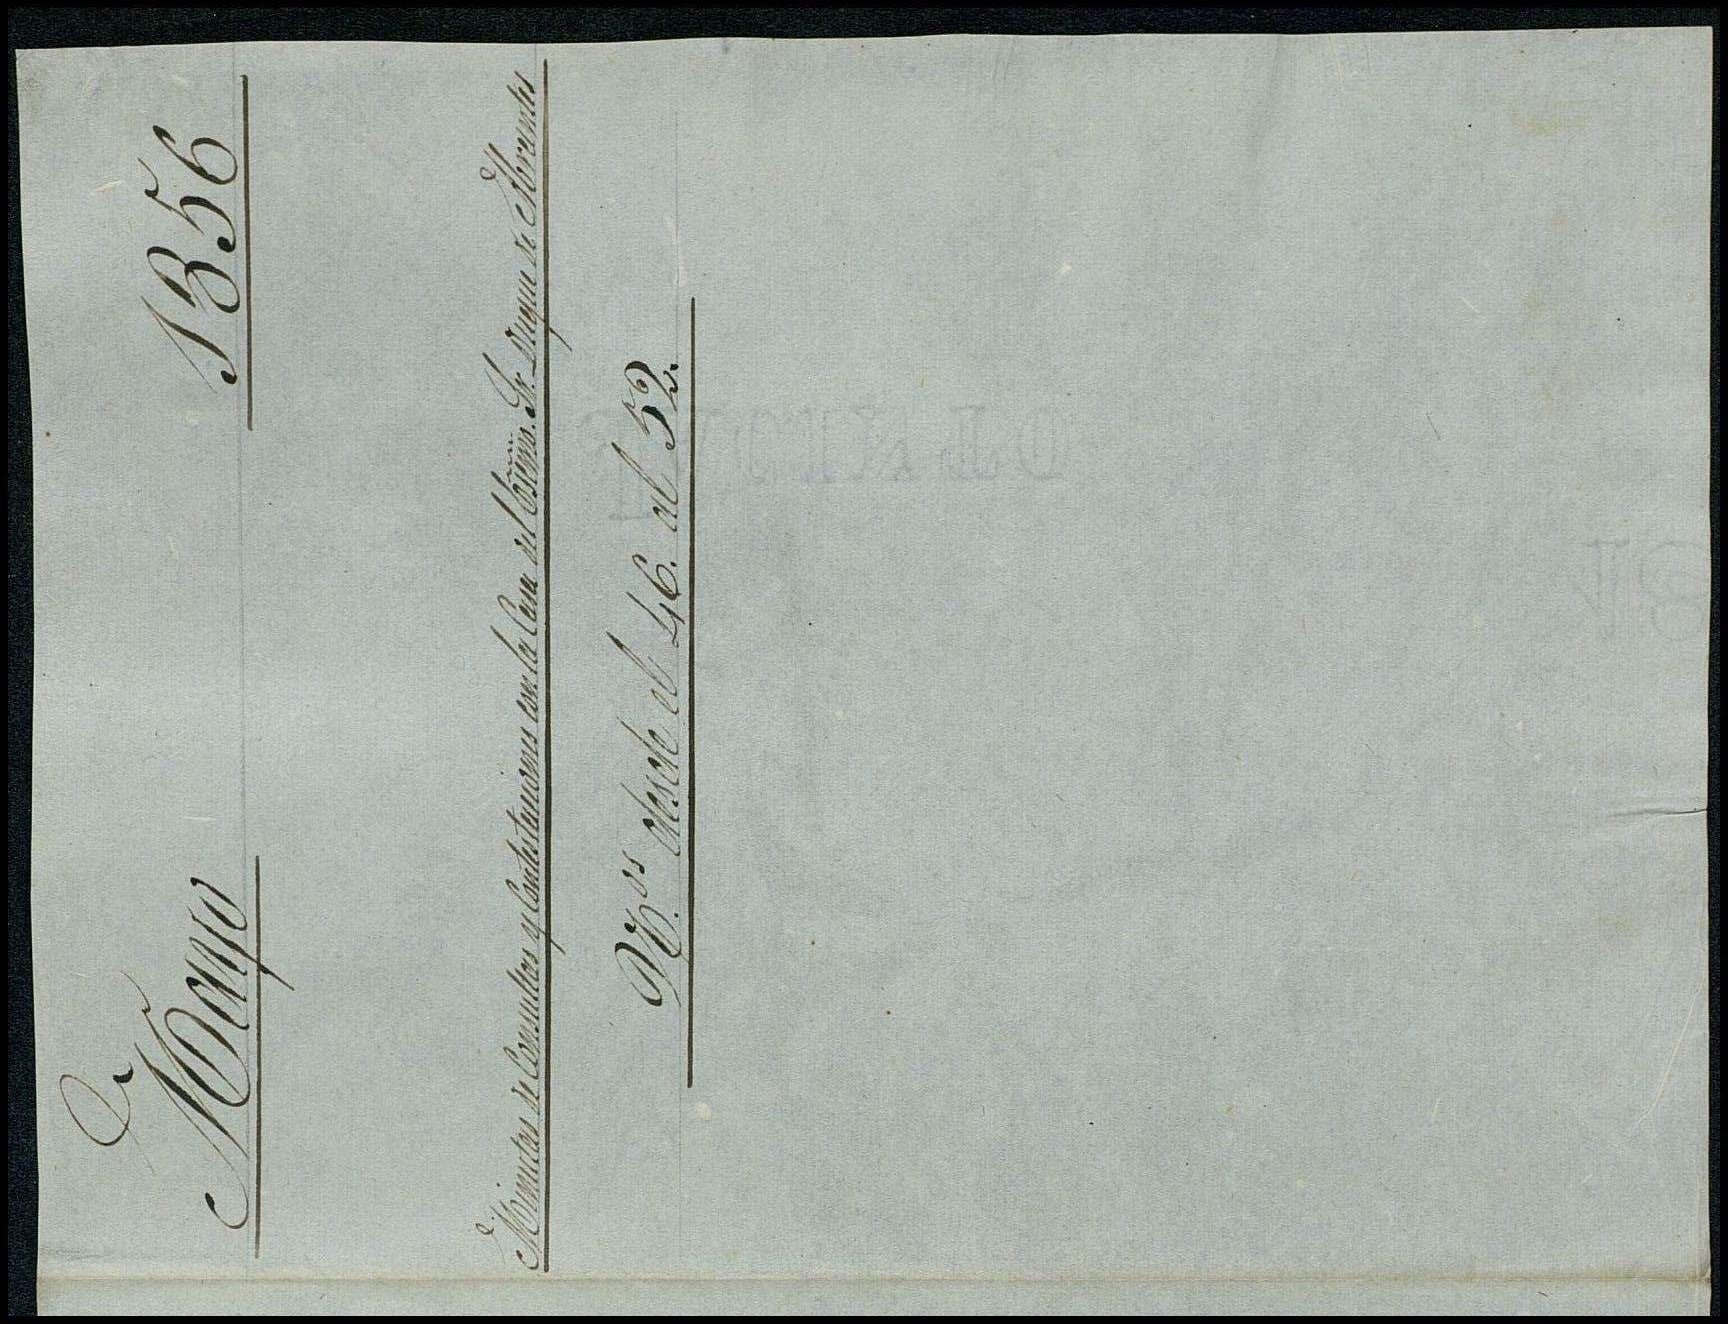 Mayo 1856
Minutas de Consultas y Contestaciones con la Casa del Exsmo. Sr. Duque de Abrantes
N.os desde el 46. al 52.